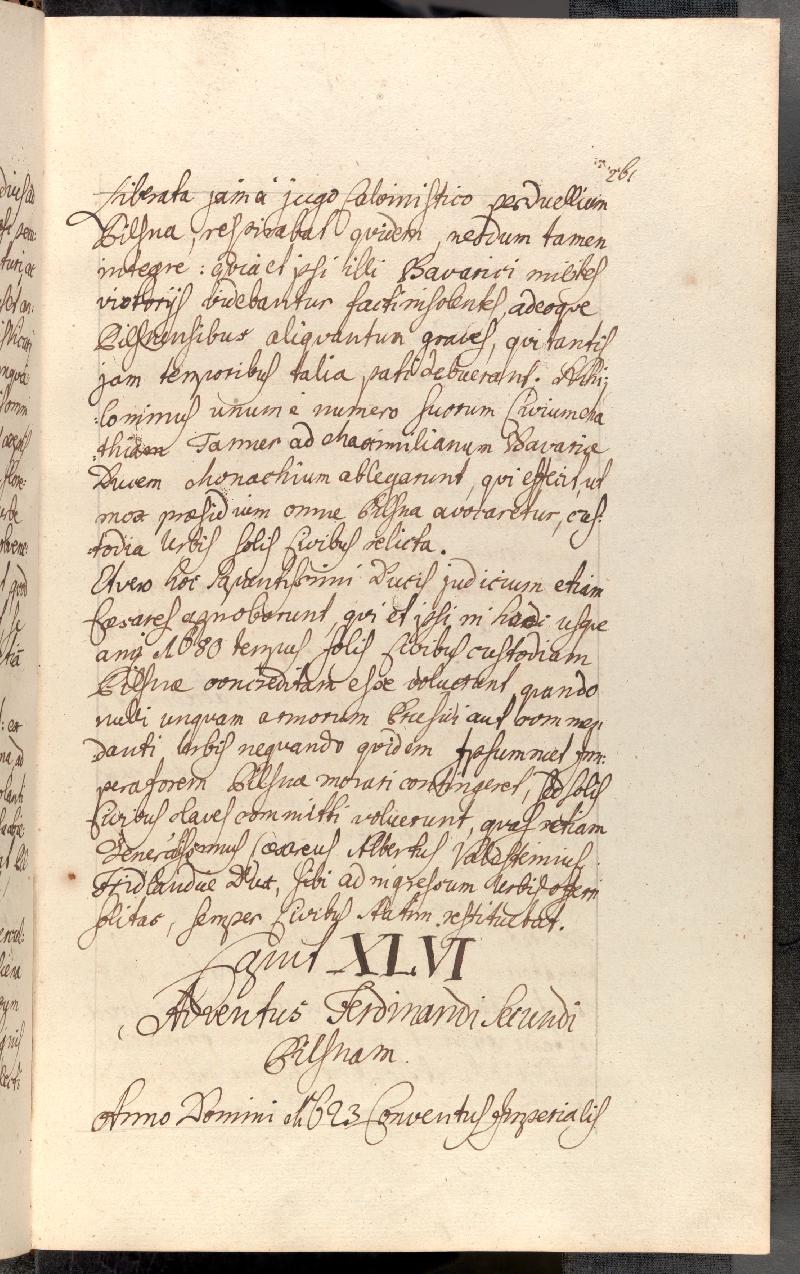 261
Liberata jam à jugo Calvinistico perduellium
Pilsna, respirabat quidem, nerdum tamen
integre: quia et ipsi illi Bavarici milites
victorijs videbantur facti insolentes, adeoque
Pilsnensibus aliquantum graves, qui tantis
jam temporibus talia pati debuerant. Nihi-
:lominus unum e numero suorum Civium Ma
:thiam Tanner ad Maximilianum Bavariæ
Ducem Monachium ablegarunt, qui effecit, ut
mox præsidium omne Pilsna avocaretur, cus:
:todia Urbis solis Civibus relicta.
Et vero hoc sapientissimi Ducis judicium etiam
Cæsares agnoverunt, qui et ipsi in usque
anni 1680 tempus solis Civibus custodiam
Pilsnæ concreditam esse voluerunt, quando
nulli unquam armorum Præsidi aut commen
danti Urbis nequando quidem ipsummet Im:
peratorem Pilsnæ morari contingeret, sed solis
Civibus claves committi voluerunt, quas etiam
Generalissimus Cæsareus Albertus Valdsteinius
Fridlandiæ Dux, sibi ad ingressum Urbis offerri
solitas, semper Civibus statim restituebat.
Caput XLVI
Adventus Ferdinandi Secundi
Pilsnam.
Anno Domini 1623 Conventus Imperialis